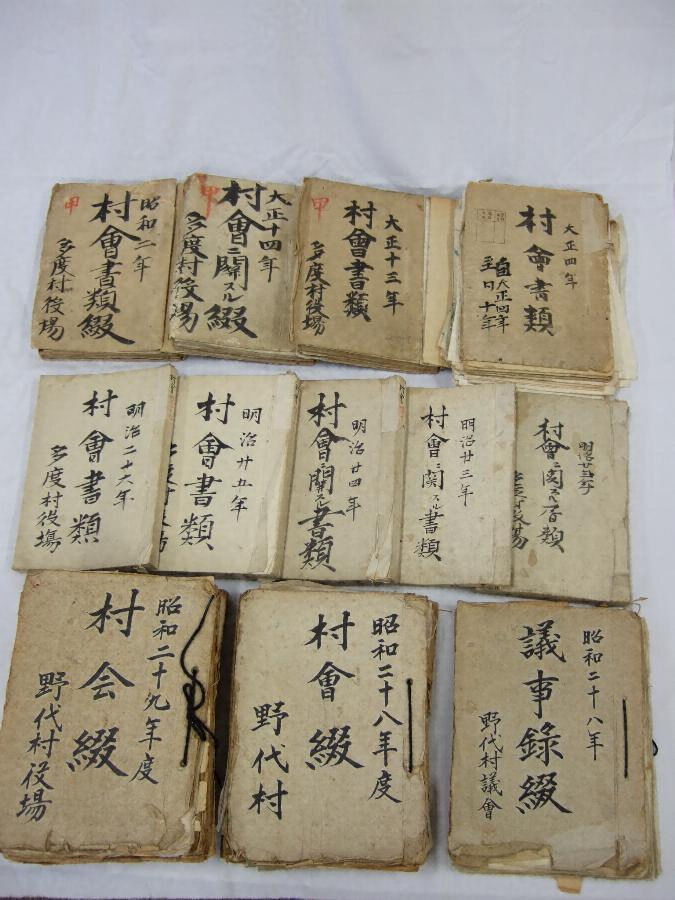 大正四年
村會書類
自大正四年
至日十年
大正十三年
村會書類
多度村役場
甲
大正十四年
村會ニ関スル綴
多度村役場
甲
昭和二年
村會書類綴
多度村役場
甲
村會ニ関スル書類
明治廿三年
村會ニ関スル書類
明治廿四年
村會ニ関スル書類
明治廿五年
村會書類
明治二十六年
村會書類
多度村役場
昭和二十八年
議事錄綴
野代村議會
昭和二十八年度
村會綴
野代村
昭和二十九年度
村会綴
野代村役場